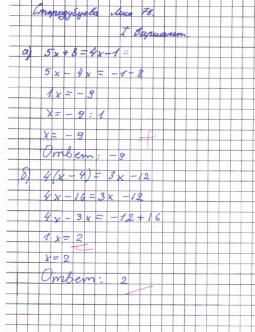 Стародубцева Лиза 7в.
I Вариант
а) 5x + 8 = 4x - 1 =
5x - 4x = -1 - 8
1x = -9
x = -9 : 1
x = -9
Ответ: -9
б) 4(x - 4) = 3x - 12
4x - 16 = 3x - 12
4x - 3x = -12 + 16
1x = 2
x = 2
Ответ: 2